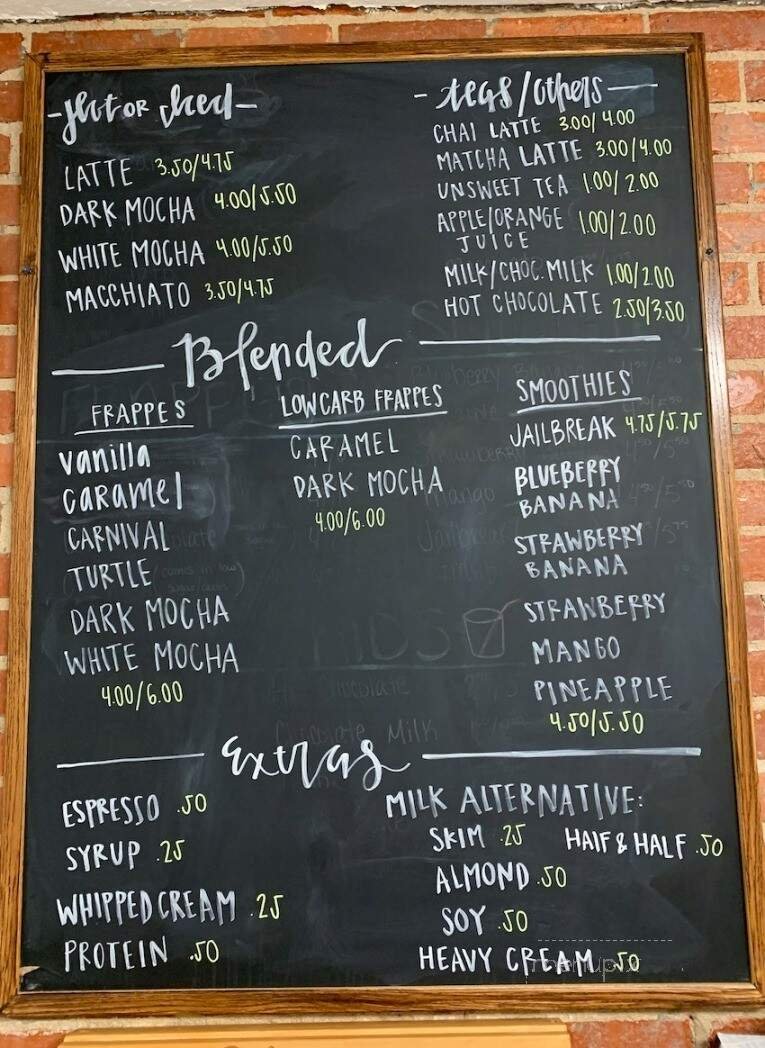 -Hot OR Iced-
LATTE 3.50/4.75
DARK MOCHA 4.00/5.50
WHITE MOCHA 4.00/5.50
MACCHIATO 3.50/4.75
-teas/others-
CHAI LATTE 3.00/4.00
MATCHA LATTE 3.00/4.00
UNSWEET TEA 1.00/2.00
APPLE/ORANGE JUICE 1.00/2.00
MILK/CHOC.MILK 1.00/2.00
HOT CHOCOLATE 2.50/3.50
Blended
FRAPPES
vanilla
caramel
CARNIVAL
TURTLE
DARK MOCHA
WHITE MOCHA
4.00/6.00
LOWCARB FRAPPES
CARAMEL
DARK MOCHA
4.00/6.00
SMOOTHIES
JAILBREAK 4.75/5.75
BLUEBERRY
BANANA
STRAWBERRY
BANANA
STRAWBERRY
MANGO
PINEAPPLE
4.50/5.50
KIDS
Chocolate Milk
Extras
ESPRESSO .50
SYRUP .25
WHIPPED CREAM .25
PROTEIN .50
MILK ALTERNATIVE:
SKIM .25 HAlF & HALF .50
ALMOND .50
SOY .50
HEAVY CREAM .50